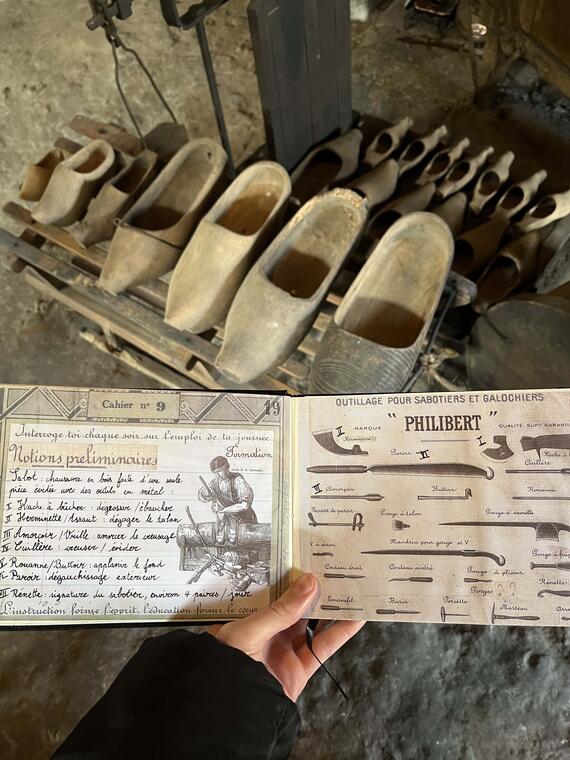 Cahier n° 9
19
Interroge toi chaque soir sur l'emploi de ta journée
Notions préliminaires
Formation
Sabot : chaussure en bois faite d'une seule
pièce évidée avec des outils en métal :
I Hache à bûcher : dégrossir / ébaucher
II Herminette / Assaut : dégager le talon
III Amorçoir / Vrille : amorcer le creusage
IV Cuillère : creuser / évider
V Rouanne / Buttoir : applanir le fond
VI Paroir : dégauchissage extérieur
VII Renette : signature du sabotier, environ 4 paires / jour
L'instruction forme l'esprit, l'éducation forme le cœur
OUTILLAGE POUR SABOTIERS ET GALOCHIERS
MARQUE
" PHILIBERT "
QUALITÉ SUPre GARANTI
II
Herminette
Paroir
VI
I
Hache à
Cuillère
III Amorçoir
Buttoir
Rouanne
Ressort de paroir
Pouce à talon
Pouge à semelle
V à coin
Mandrin pour gouge et V
Couteau droit
Couteau cintré
Pouge à glisser
Forges
Renette
Tournefil
Burin
Percette
Marteau